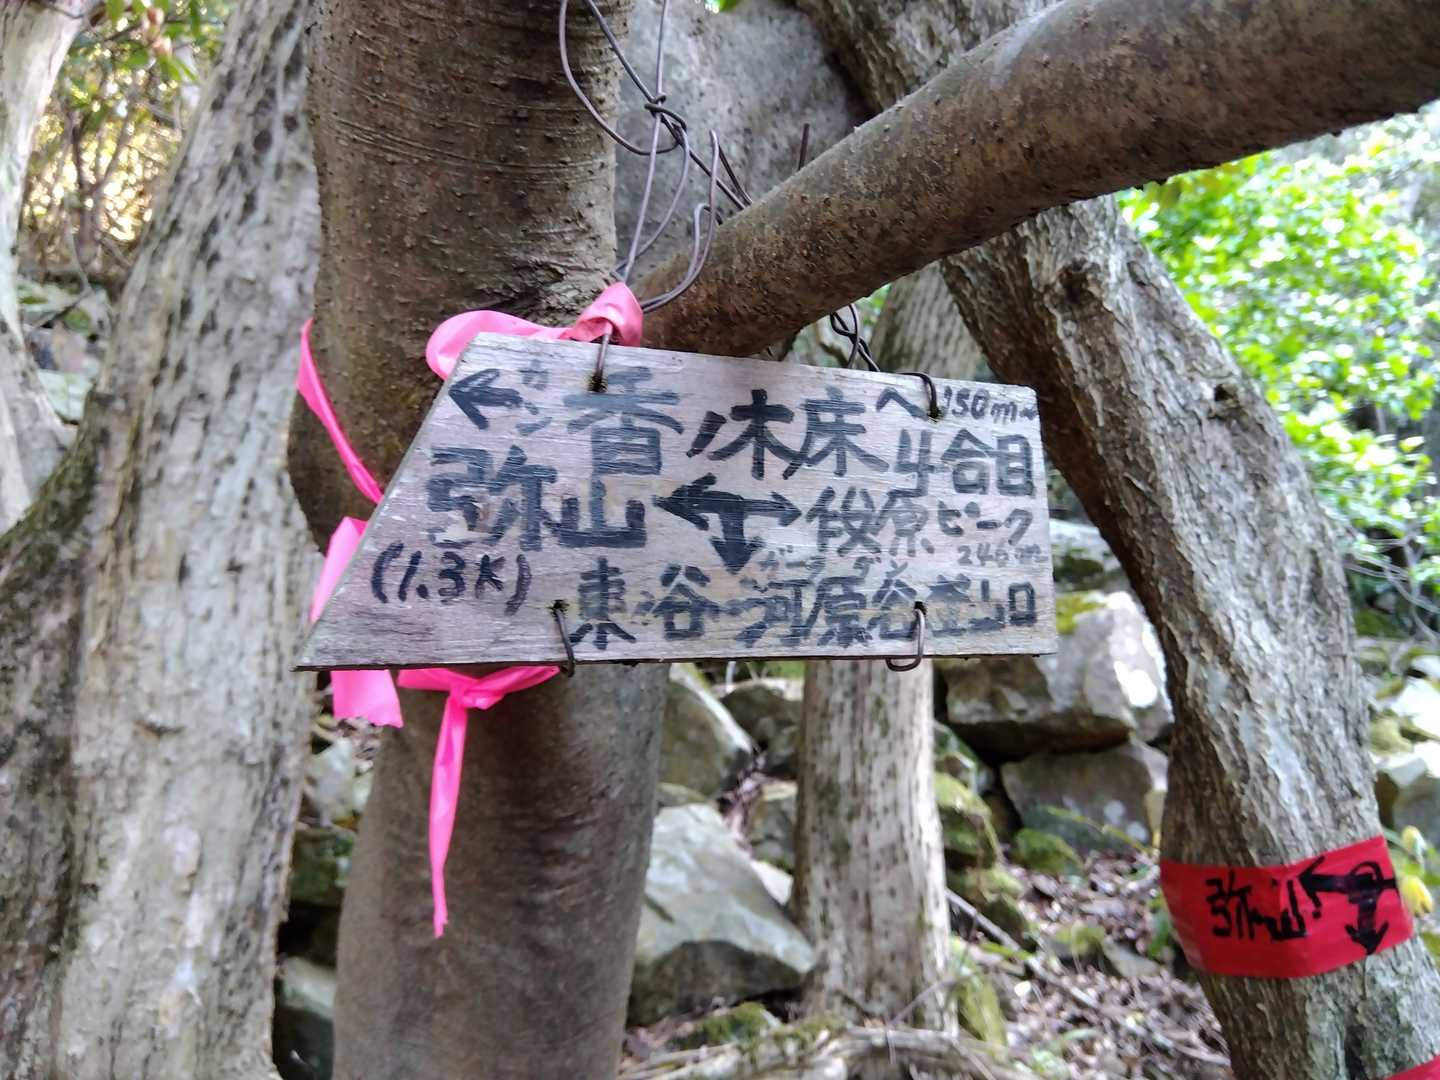 ← カン 香ノ木床へ 150m
4合目
弥山 ←→ 俊原ピーク
(1.3K) 246m
東谷 河原谷登山口
弥山